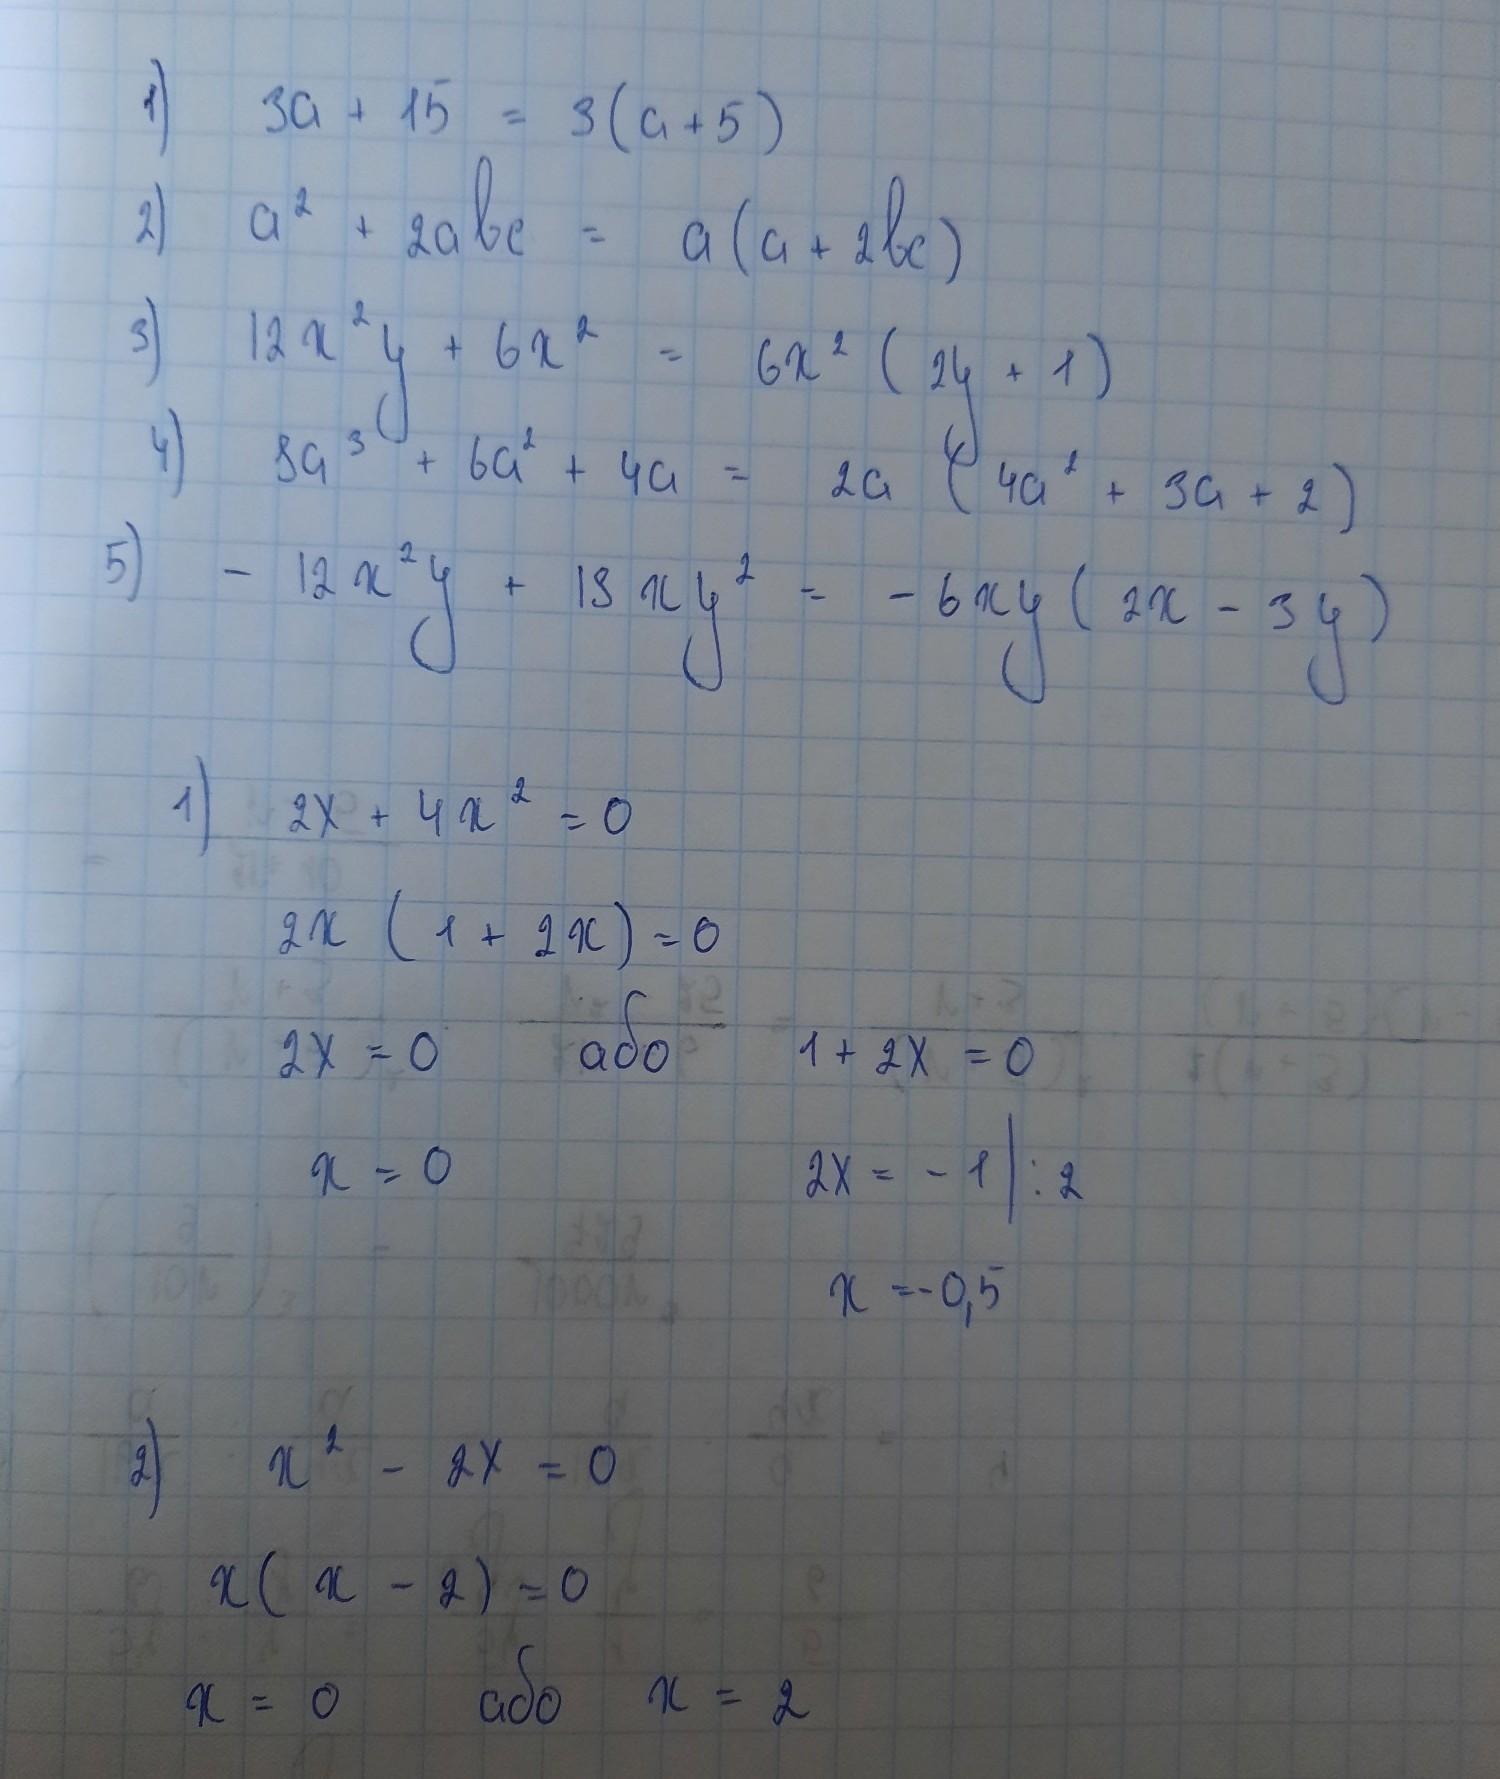 1) 3a + 15 = 3(a+5)
2) a² + 2abc = a(a + 2bc)
3) 12x²y + 6x² = 6x² (2y + 1)
4) 8a³ + 6a² + 4a = 2a (4a² + 3a + 2)
5) - 12x²y + 18xy² = - 6xy(2x - 3y)
1) 2x + 4x² = 0
2x (1 + 2x) = 0
2x = 0 або 1 + 2x = 0
x = 0 2x = - 1 | : 2
x = -0,5
2) x² - 2x = 0
x(x - 2) = 0
x = 0 або x = 2